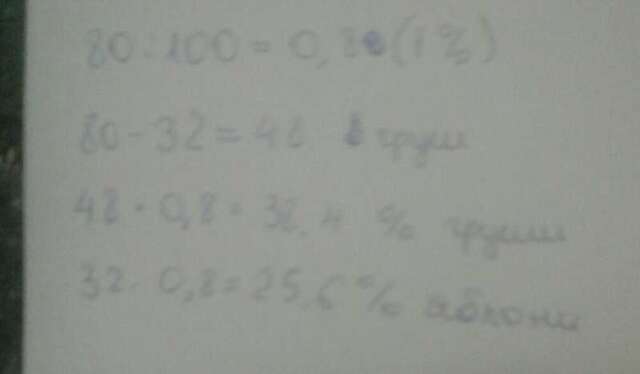 80:100=0,8 (1%)
80-32=48 груш
48·0,8=38,4 % груши
32·0,8=25,6 % яблони